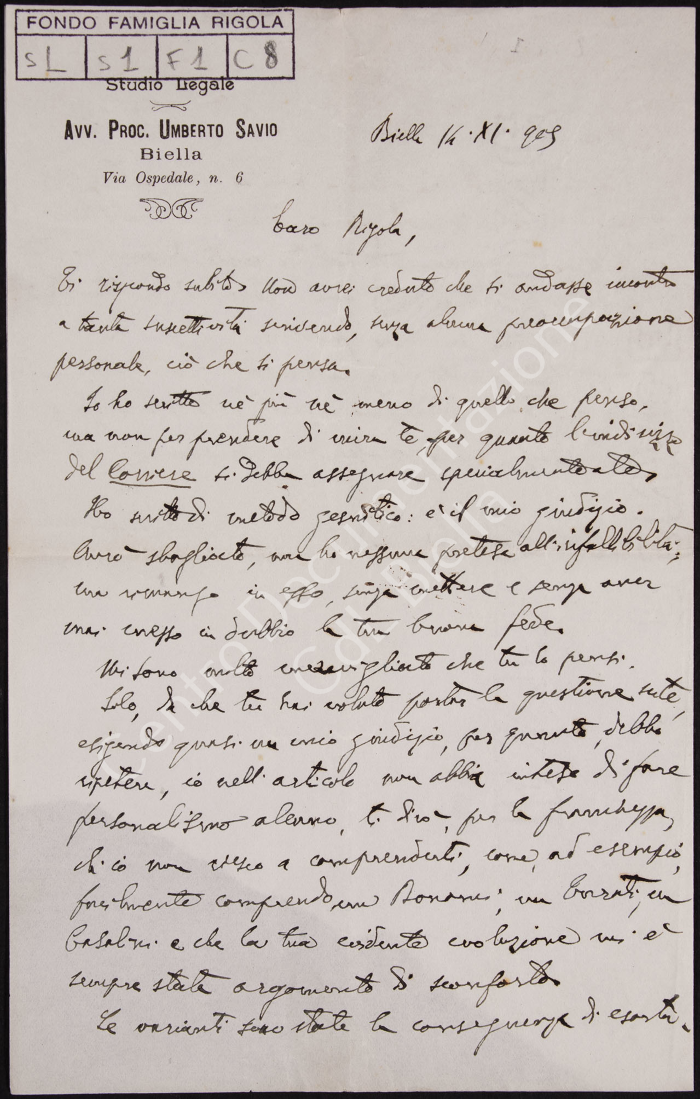 FONDO FAMIGLIA RIGOLA
SL S1 F1 C8
Studio Legale
AVV. PROC. UMBERTO SAVIO
Biella
Via Ospedale, n. 6
Biella 14. XI. 909
Caro Rigola,
Ti rispondo subito. Non avrei creduto che si andasse incontro
a tanta suscettività scrivendo, senza alcuna preoccupazione
personale, ciò che si pensa.
Io ho scritto nè più nè meno di quello che penso,
ma non per prendere di mira te, per quanto l'indirizzo
del Corriere si debba assegnare specialmente a te.
Ho scritto di metodo gesuitico: è il mio giudizio.
Avrò sbagliato, ma ho nessuna pretesa all'infallibilità;
ma rimango in esso, senza mettere e senza aver
mai messo in dubbio la tua buona fede.
Mi sono molto meravigliato che tu lo pensi.
Solo, da che tu hai voluto portar la questione su te,
esigendo quasi un mio giudizio, per quanto, debbo
ripetere, io nell'articolo non abbia inteso di fare
personalismo alcuno, ti dirò, per la franchezza,
ch'io non riesco a comprenderti, come, ad esempio,
facilmente comprendo un Bonomi, un
Casalini e che la tua evidente evoluzione mi è
sempre stata argomento di sconforto.
Le varianti sono state la conseguenza di
Centro Documentazione
CdL Biella